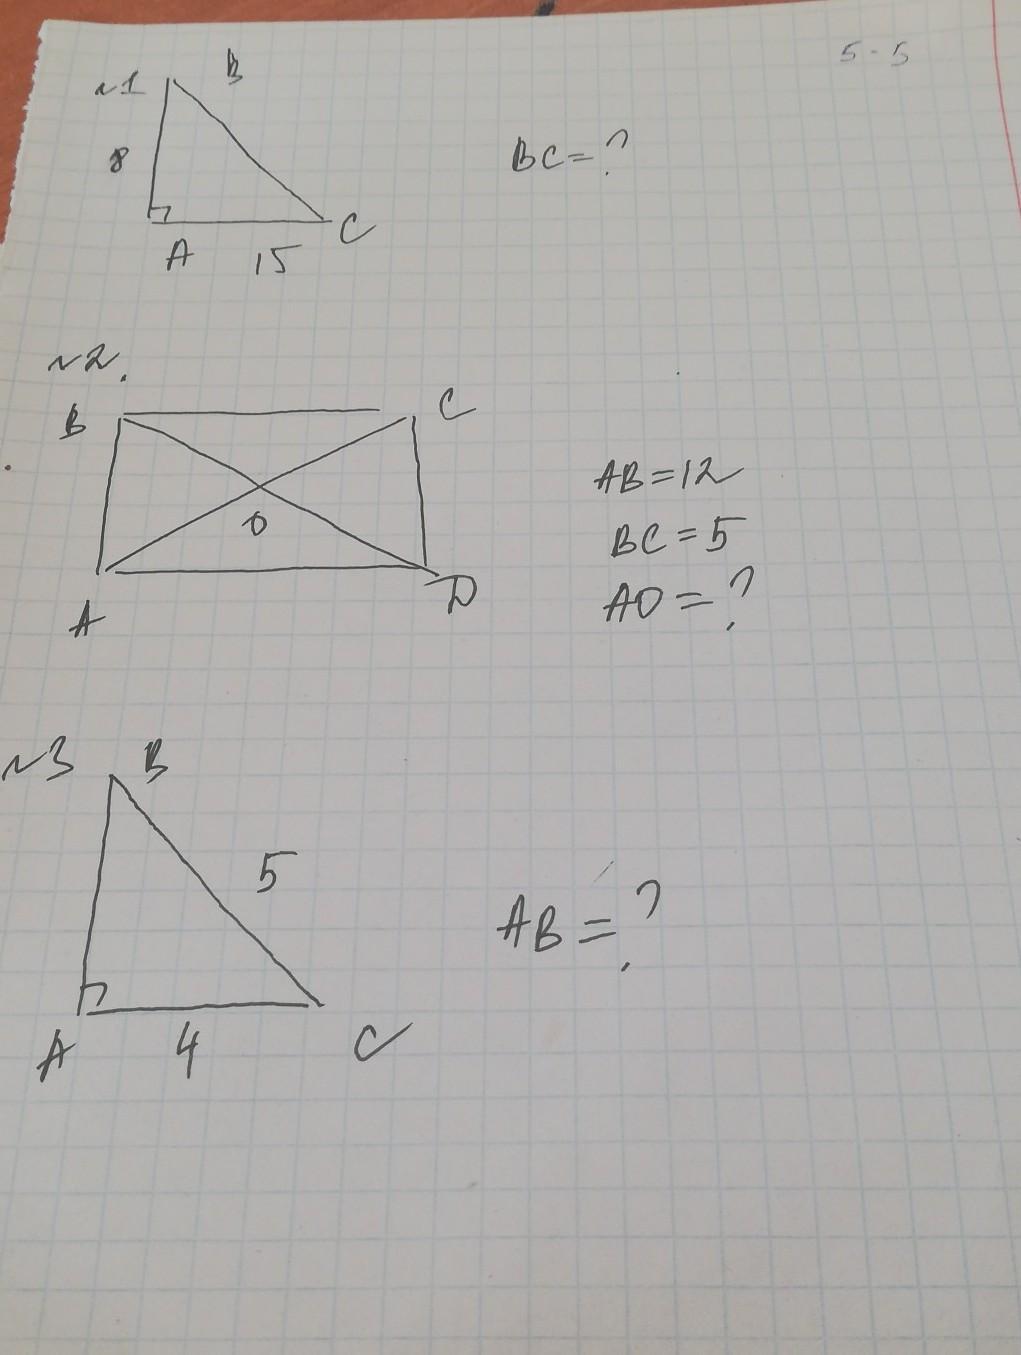 5-5
№1
B
8
BC = ?
A 15 C
№2.
B C
O
AB = 12
BC = 5
AO = ?
A D
№3 B
5
AB = ?
A 4 C